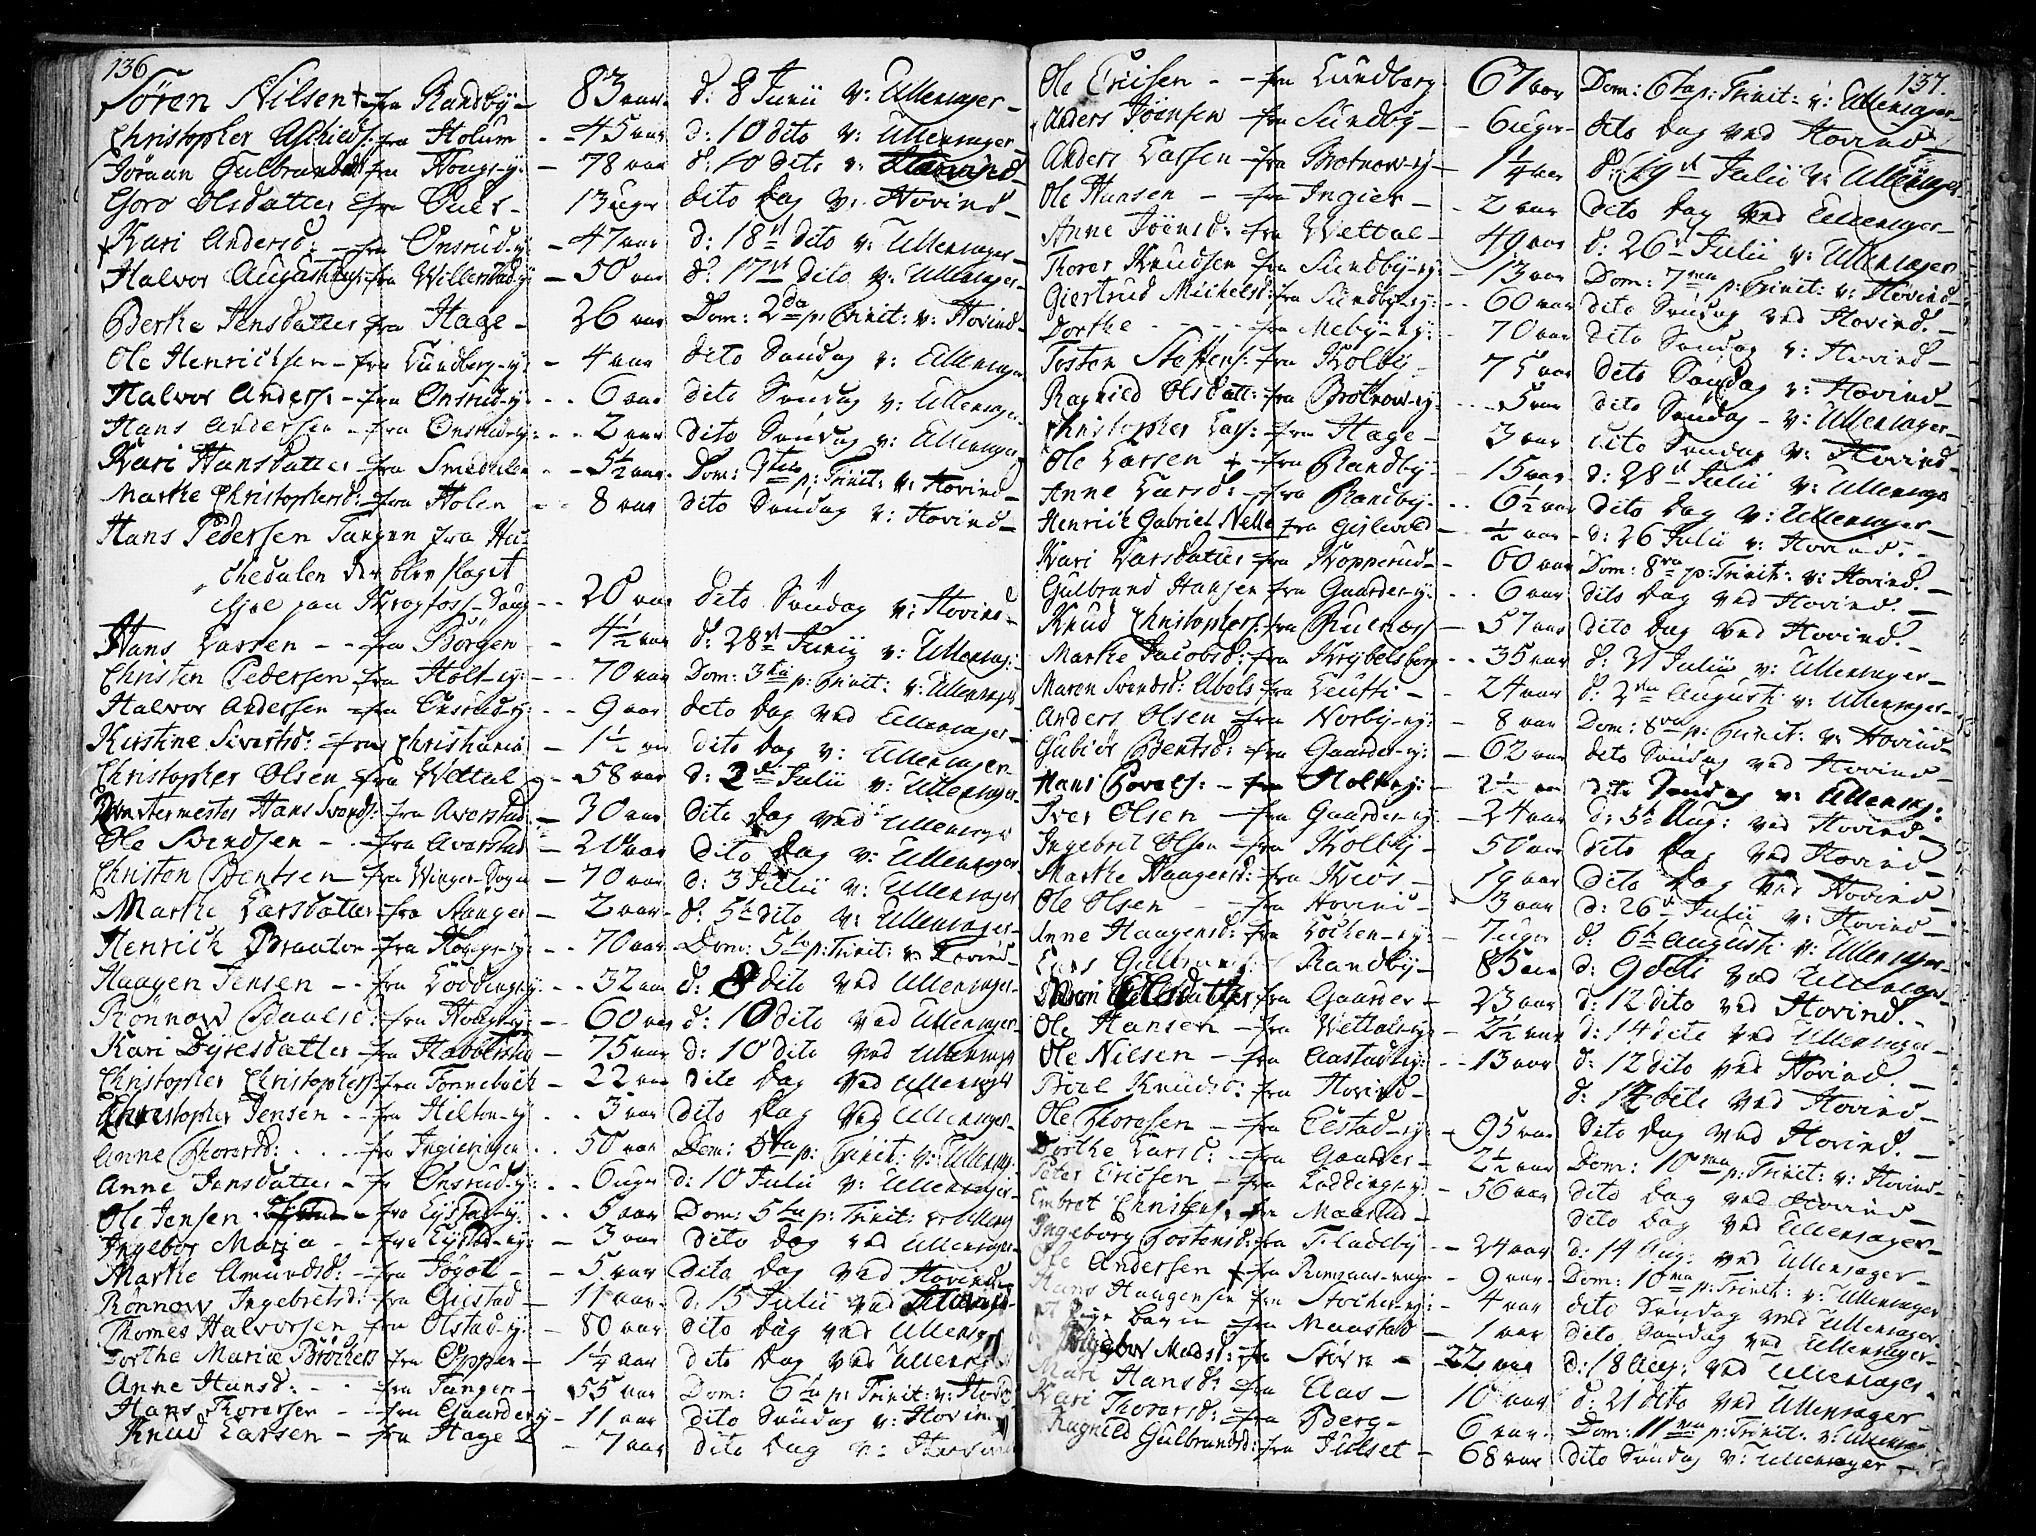 136
Søren Nilsen fra Randby – 83 aar d: 8 Junii v: Ullensager
Christopher fra Holum – 45 aar d: 10 dito v: Ullensager
Jøraan Gulbrandsd fra Houg-ey: – 78 aar d: 10 dito v: Hovind
Goro Olsdatter fra – 13 uger dito dag v: Hovind
Kari Andersd: – fra Onsrud-ey: – 47 aar d: 18 dito v: Ullensager
Halvor fra – 50 aar d: 17 dito v: Ullensager
Berthe Jensdatter fra Hage – 26 aar Dom: 2da p: Trinit: v: Hovind
Ole Henrichsen – fra Lundberg-ey: – 4 aar dito Søndag v: Ullensager
Halvor Anders: – fra Onsrud-ey: – 6 aar dito Søndag v: Ullensager
Hans Andersen – fra Onsrud-ey: – 2 aar dito Søndag v: Ullensager
Kari Hansdatter – fra Smedhalen – 5½ aar Dom: p: Trinit: v: Hovind
Marthe Christophersd: fra Holen – 8 aar dito Søndag v: Hovind
Hans Pedersen Tangen fra Hu-
chedalen der blev slaget
ihjel paa Krogfoss-Saug – 20 aar dito Søndag v: Hovind
Hans Larsen – fra Borgen – 4½ aar d: 28 Junij v: Ullensag:
Christen Pedersen fra Holt-ey: – 70 aar Dom: 3tia p: Trinit: v: Ullensager
Halvor Andersen – fra Onsrud-ey: – 9 aar dito dag ved Ullensager
Kirstine Sivertsd: fra Christiania – 1½ aar dito dag v: Ullensager
Christopher Olsen fra Wettal – 58 aar d: 2 Julii v: Ullensager
Hans Svends: fra Averstad – 30 aar dito dag ved Ullensager
Ole Svendsen – fra Averstad – 20 aar dito dag v: Ullensager
Christen Bentsen – fra Winger-Sogn – 70 aar d: 3 Julii v: Ullensager
Marthe Larsdatter – fra Stanger – 2 aar d: 5 dito v: Ullensager
Henrich Braaten – fra Houg-ey: – 70 aar Dom: 5ta p: Trinit: v: Hovind
Haagen Jensen – fra Lødding-ey: – 32 aar d: 8 dito ved Ullensager
Rønnow Paulsd: fra Houg-ey: – 60 aar d: 10 dito ved Ullensager
Kari Dyresdatter – fra Habberstad – 75 aar d: 10 dito ved Ullensager
Christopher Christophers: fra – 22 aar dito dag ved Ullensager
Christopher Jensen – fra Hilton-ey – 3 aar dito dag ved Ullensager
Anne Thorersd: – fra – 50 aar Dom: 5ta p: Trinit: v: Ullensag:
Anne Jensdatter – fr Onsrud-ey: – 6 uger d: 10 Julii v: Ullensager
Ole Jensen – fra Eystad-ey: – 5 aar Dom: 5ta p: Trinit: v: Ullensag
Ingebor Maria – fra Eystad-ey: – 3 aar dito dag ved Ullensager
Marthe Amundsd: – fra – 5 aar dito dag ved Hovind
Rønnow Ingebretsd: fra Gustad – 11 aar d: 15 Julii ved
Thomes Halvorsen fra Olstad-ey: – 80 aar dito dag ved Ullensager
Dorthe Maria Bröchers fra Oppen – 1¼ aar dito dag ved Ullensager
Anne Hansd: – fra Tangen – 55 aar Dom: 6ta p: Trinit: v: Hovind
Hans Thorersen – fra Gaarder-ey – 11 aar dito Søndag v: Hovind
Knud Larsen – fra Hage – 7 aar dito dag v: Hovind
137.
Ole Ericsen – fra Lundberg – 67 aar Dom: 6ta p: Trinit: v: Ullensager
Anders Joensen fra Sundby – 6 uger dito dag ved Hovind
Anders Larsen – fra Brotnow-ey – 1¼ aar d: 19 Julii v: Ullensager
Ole Hansen – fra Ingier – 2 aar dito dag ved Ullensager
Anne Joensd: fra Wettal – 49 aar d: 26 Julii v: Ullensager
Thorer Knudsen fra Sundby-ey – 13 aar Dom: 7ma p: Trinit: v: Hovind
Giertrud Michelsd: fra Sundby-ey: – 60 aar dito Søndag ved Hovind
Dorthe – fra Meby-ey: – 70 aar dito Søndag v: Hovind
Tosten Steffens: fra Kolby – 75 aar dito Søndag v: Hovind
Ragnild Olsdatt: fra Brotnow-ey: – 5 aar dito Søndag – v: Ullensager
Christopher Lars: fra Hage – 3 aar dito Søndag v: Hovind
Ole Larsen – fra Randby – 15 aar d: 28 Julii v: Ullensager
Anne Larsd: – fra Randby – 6½ aar dito dag v: Ullensager
Henrich Gabriel Nelle fra Gislevold – ½ aar d: 26 Julii v: Hovind
Kari Larsdatter fra Kopperud – 60 aar Dom: 8va p: Trinit: v: Hovind
Gulbrand Hansen fra Gaarder-ey: – 6 aar dito dag ved Hovind
Knud Christophers: fra – 57 aar dito dag ved Hovind
Marthe Jacobsd: fra – 35 aar d: 31 Julii v: Ullensager
Maren Svendsd: Abels fra – 24 aar d: 2 Augusti v: Ullensager
Anders Olsen – fra Norby-ey: – 8 aar Dom: 8va p: Trinit: v: Hovind
Gubiør Bentsd: – fra Gaarder-ey: – 62 aar dito Søndag ved Hovind
Hans – fra Holt-ey: – 2½ aar dito Søndag v: Ullensag:
Iver Olsen – fra Gaarder-ey – 24 aar d: 5 Aug: ved Hovind
Ingebret Olsen – fra Kolby – 50 aar dito dag ved Hovind
Marthe Haagensd: fra – 19 aar dito dag ved Hovind
Ole Olsen – fra Hovind – 3 aar d: 26 Julii v: Hovind
Anne Haagensd: fra Løchen-ey: – 7 uger d: 6 Augusti v: Ullensager
Lars Gulbrands: Randby – 85 aar d: 9 dito ved Ullensager
fra Gaarder – 23 aar d: 12 dito ved Hovind
Ole Hansen – fra Wettal-ey – 2½ aar d: 14 dito ved Ullensager
Ole Nilsen – fra Aastad-ey: – 13 aar d: 12 dito ved Hovind
Boel Knudsd: fra Hovind – d: 12 dito ved Hovind
Ole Thoresen – fra Elstad-ey: – 95 aar dito dag ved Hovind
Dorthe Larsd: – fra Gaarder – 2½ aar Dom: 10ma p: Trinit: v: Hovind
Peter Ericsen – fra Lødding-ey: – 56 aar dito dag ved Hovind
Embret Christens: fra Maarud – dito dag ved Ullensager
Ingeborg Tostensd: fra Fladeby – 24 aar d: 14 Aug: ved Ullensager
Ole Andersen – fra – 9 aar Dom: 10ma p: Trinit: v: Ullensager
Hans Haagensen fra Løchen-ey: – 4 aar dito Søndag ved Ullensager
Barn fra Maastad – 1 aar dito Søndag ved Ullensager
Ingebor Madsd: fra – 22 aar d: 18 Aug: ved Ullensager
Mari Hansd: fra Aas – 10 aar d: 21 dito ved Ullensager
Kari Thorersd: fra Berg – 6 aar Dom: 11ma p: Trinit: v: Ullensag
Ragnild Gulbrandsd: fra Julset – 68 aar dito Søndag v: Ullensager